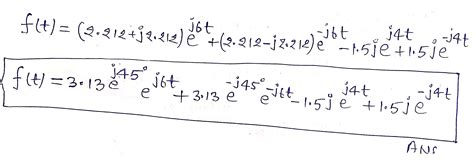 f(t) = (2.212+j2.212)e^{j6t} + (2.212-j2.212)e^{-j6t} - 1.5je^{j4t} + 1.5je^{-j4t}
f(t) = 3.13e^{j45°} e^{j6t} + 3.13 e^{-j45°} e^{-j6t} - 1.5j e^{j4t} + 1.5j e^{-j4t}
ANS